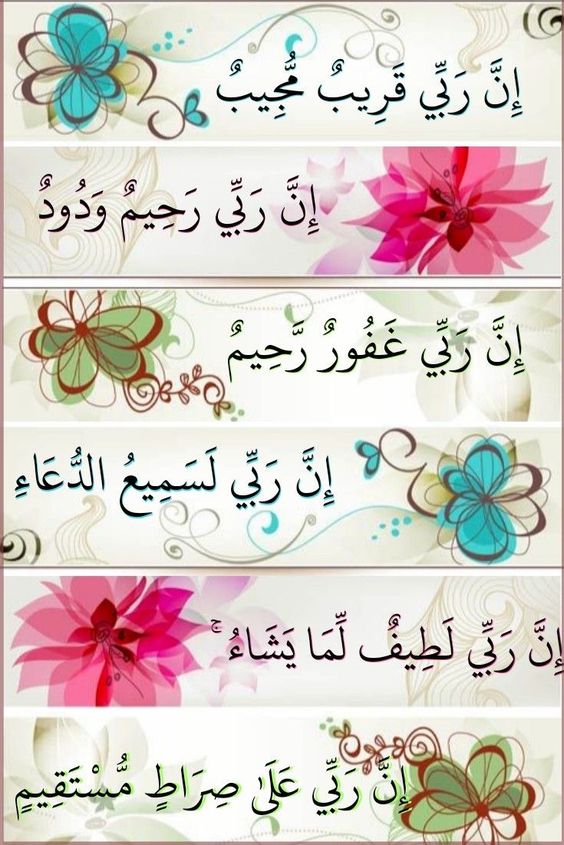 إِنَّ رَبِّي قَرِيبٌ مُّجِيبٌ
إِنَّ رَبِّي رَحِيمٌ وَدُودٌ
إِنَّ رَبِّي غَفُورٌ رَّحِيمٌ
إِنَّ رَبِّي لَسَمِيعُ الدُّعَاءِ
إِنَّ رَبِّي لَطِيفٌ لِّمَا يَشَاءُ ۚ
إِنَّ رَبِّي عَلَىٰ صِرَاطٍ مُّسْتَقِيمٍ